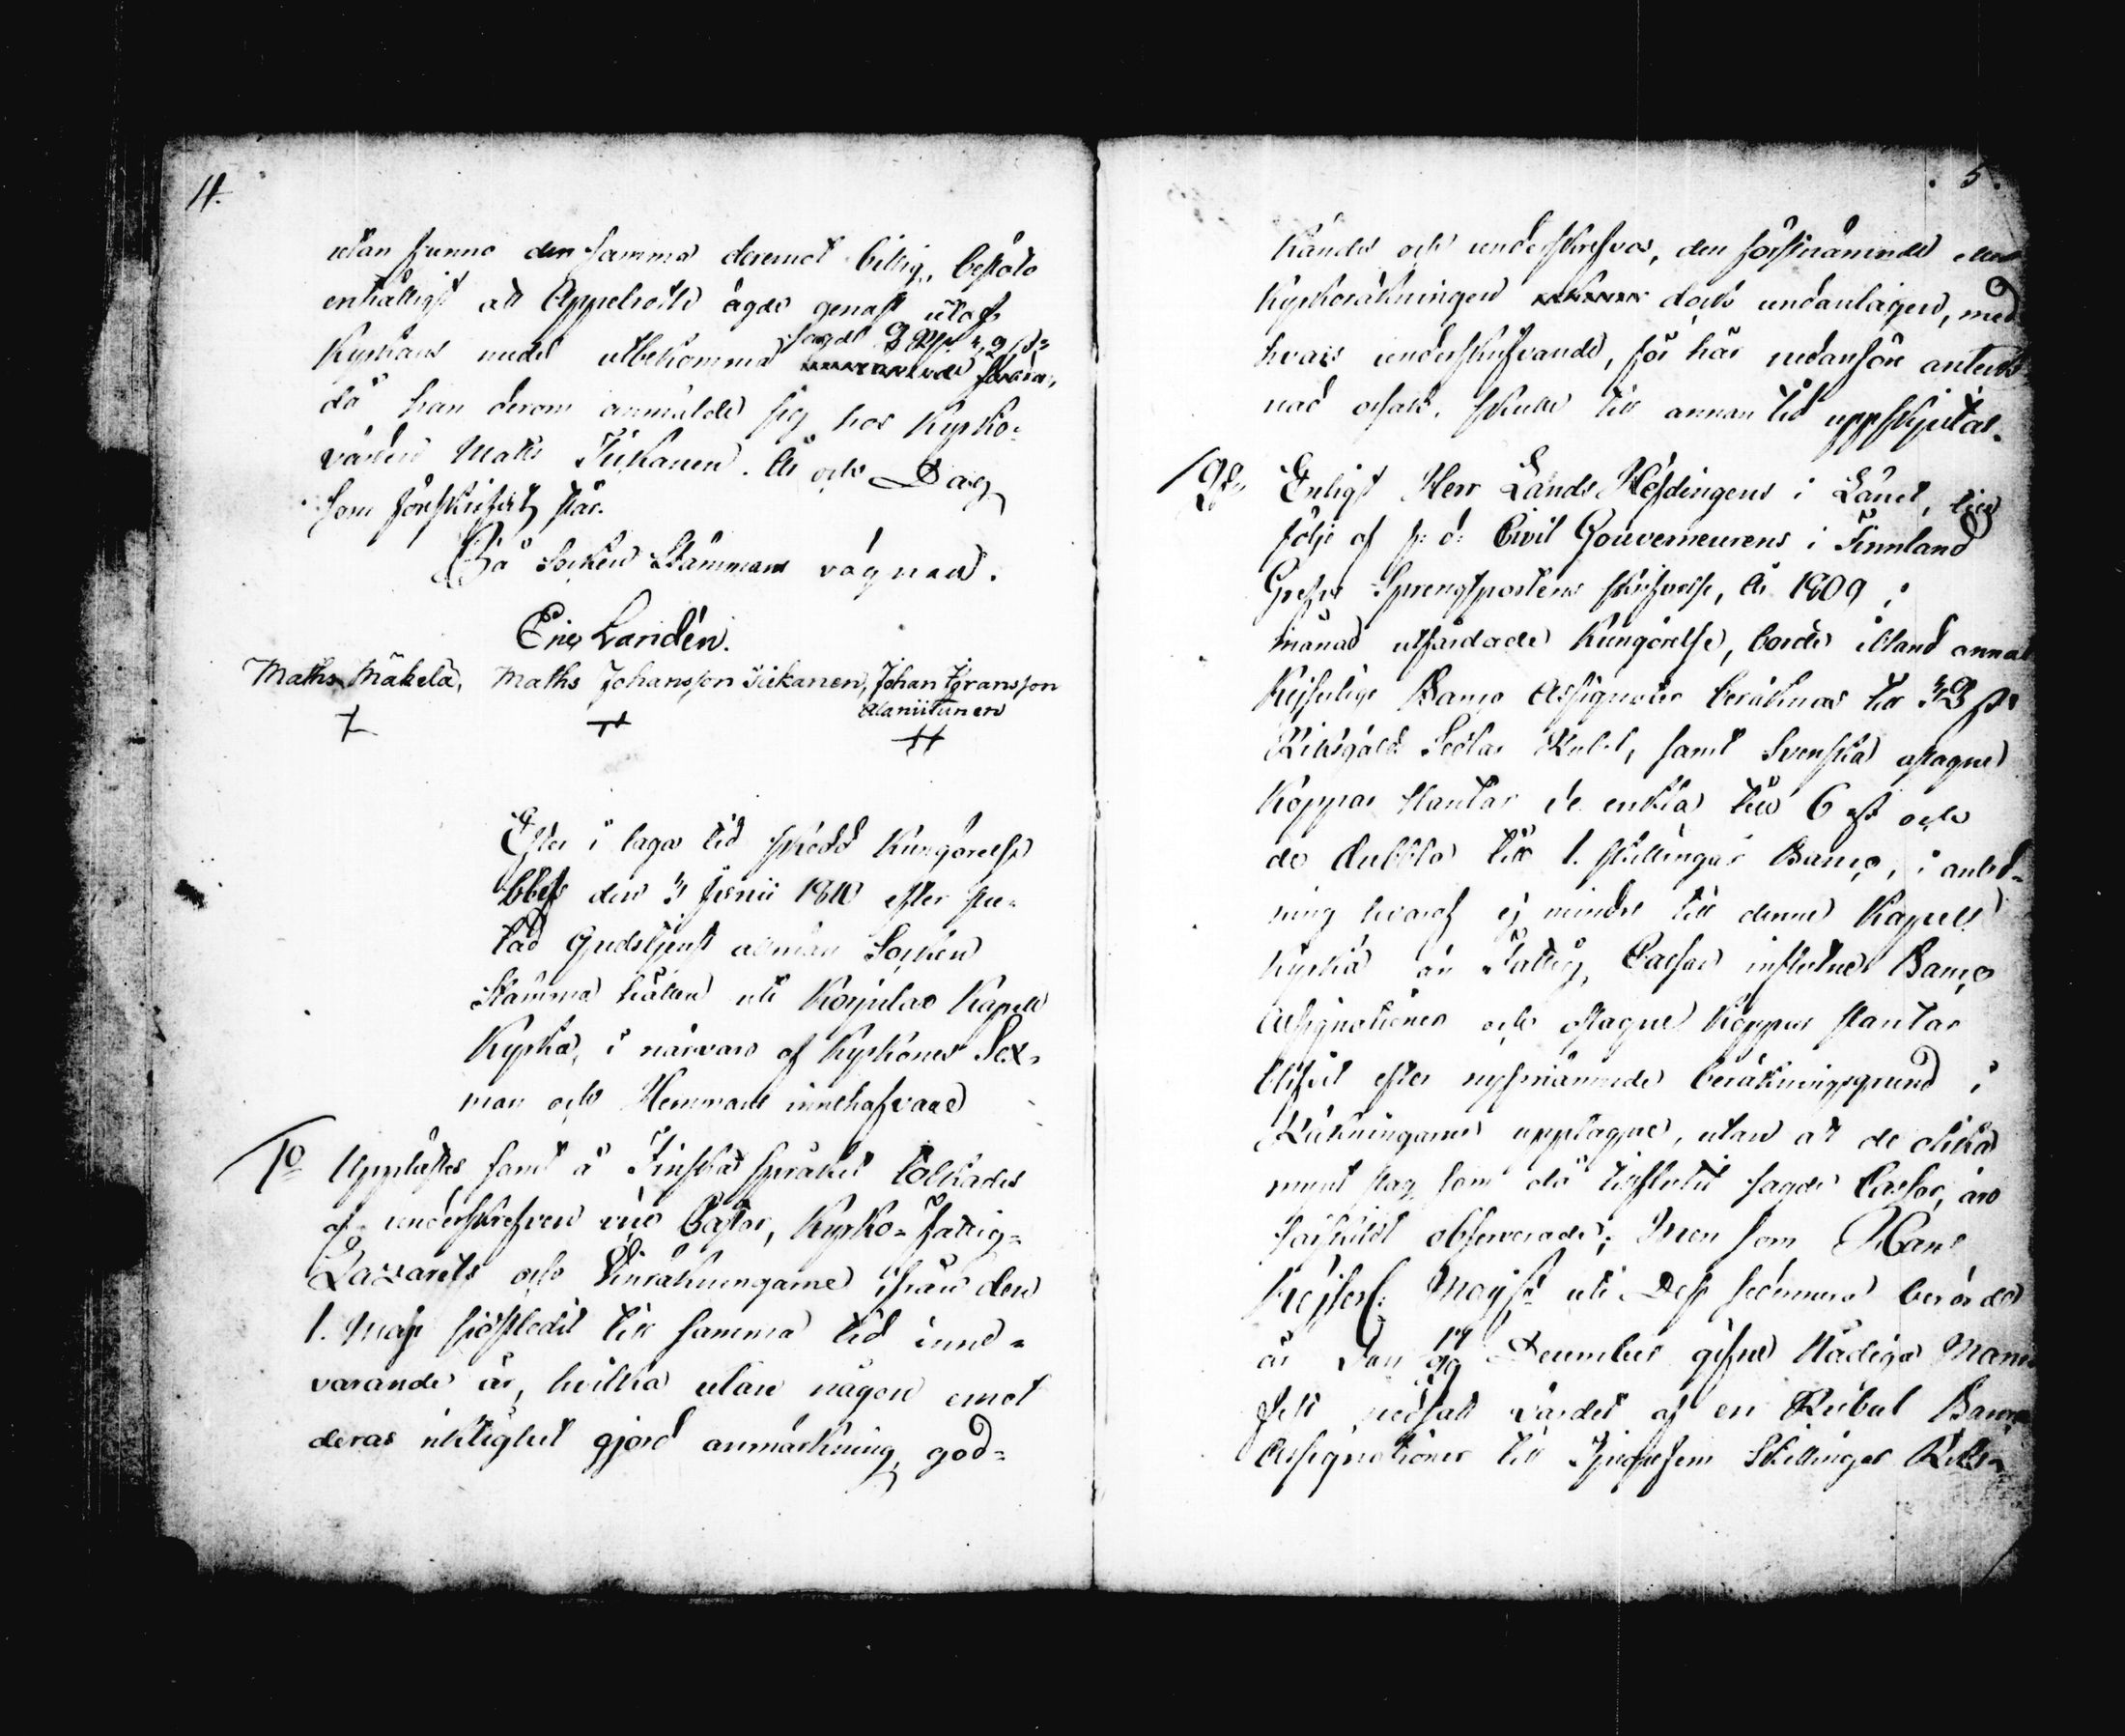 4.
utan funno densamma deremot billig, beslöto
enhälligt att Appelroth ägde genast utaf
Kyrkans medel utbekomma sagde
då han derom anmälde sig hos Kyrko-
värden Matts Siikanen. År och Dag
som förskrifvit står.
På Socken Stämmans vägnar.
Eric Lanidén.
Maths Mäkelä, Maths Johansson Siikanen, Johan Göransson
Alaniitunen
Efter i laga tid skedd Kungörelse
blef den 3 Junii 1810 efter slu-
tad Gudstjenst allmän Socken
Stämma hållen uti Korpilax Kapell
Kyrka, i närvaro af Kyrkones Sex-
män och Hemmans innehafvare
1o Upplästes samt å Finska språket tolkades
af underskrefven vice Pastor, Kyrko- Fattig-
Lazaretts och Vinräkningarne ifrån den
1. Maji sistledit till samma tid inne-
varande år, hvilka utan någon emot
deras riktighet gjord anmärkning, god-
5.
kändes och underskrefvos, den förstnämnde eller
Kyrkoräkningen dock undantagen, med
hvars underskrifvande, för här nedanföre anteck-
nad orsak, skulle till annan tid uppskjutas.
2o Enligt Herr Lands Höfdingens i Länet, till
följe af f: d: Civil Gouverneurens i Finnland
Grefve Sprengtportens skrifvelse, År 1809 i
månad utfärdade Kungörelse, borde ibland annat
Kejserlige Banco Assignater beräknas till 32 s
Riksgäld Sedlar Rubel, samt Svenska aftagne
Koppar slantar de enkla till 6 rst och
de dubbla till 1. skillingar Banco, i anled-
ning hvaraf ej mindre till denne Kapell
Kyrka än Fattig Cassan influtne Banco
Assignationer och aftagne Koppar slantar
blifvit efter nyssnämnde beräkningsgrund i
Räkningarne upptagne, utan att de olika
mynt slag som då tillflutit sagde Cassor, äro
särskildt observerade; Men som Hans
Kejserl: Majst uti Dess sednare berörde
år den 17/29 December gifne Nådiga Mani-
fest nedsatt värdet af en Rubel Banco
Assignationer till Tjugufem Skillingar Riks-